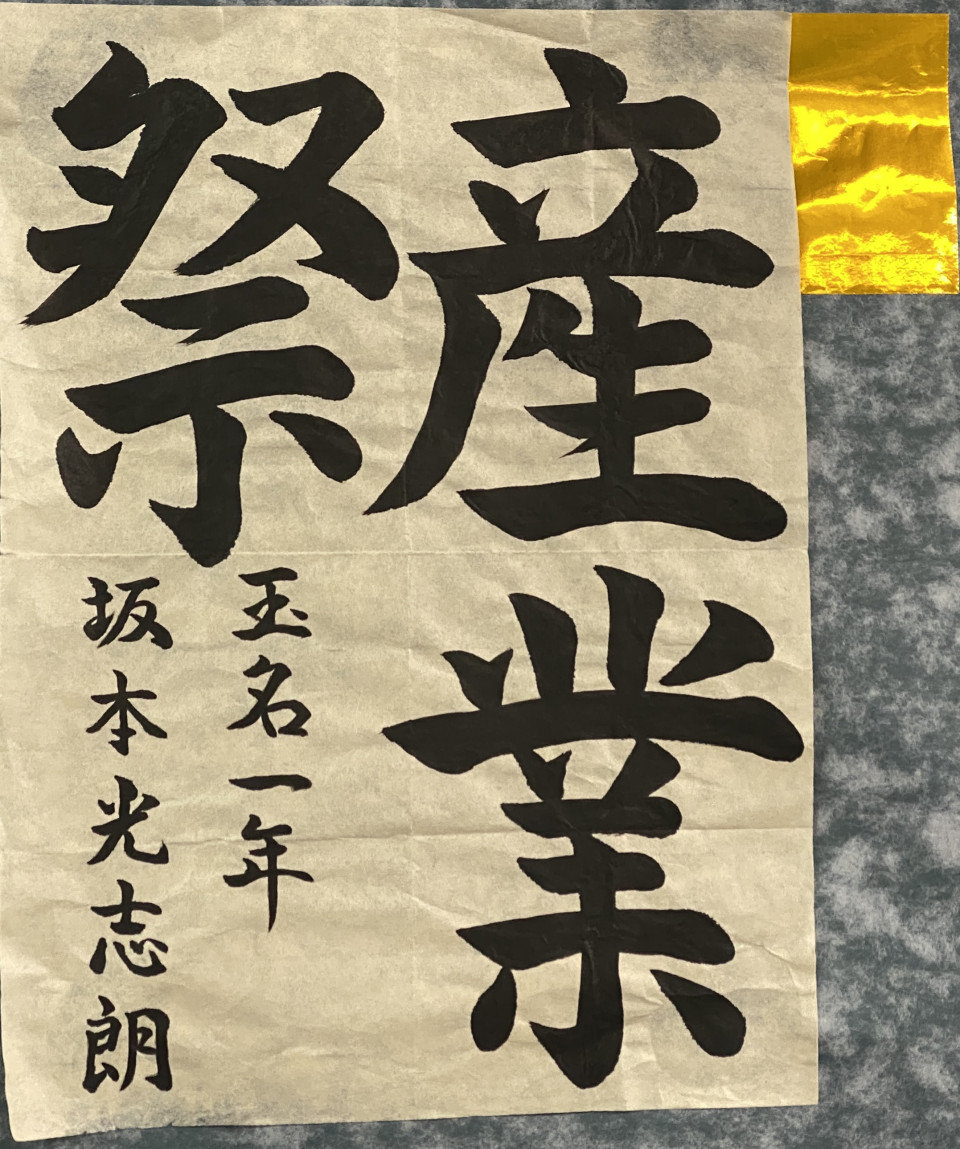 産業
祭
玉名一年
坂本光志朗